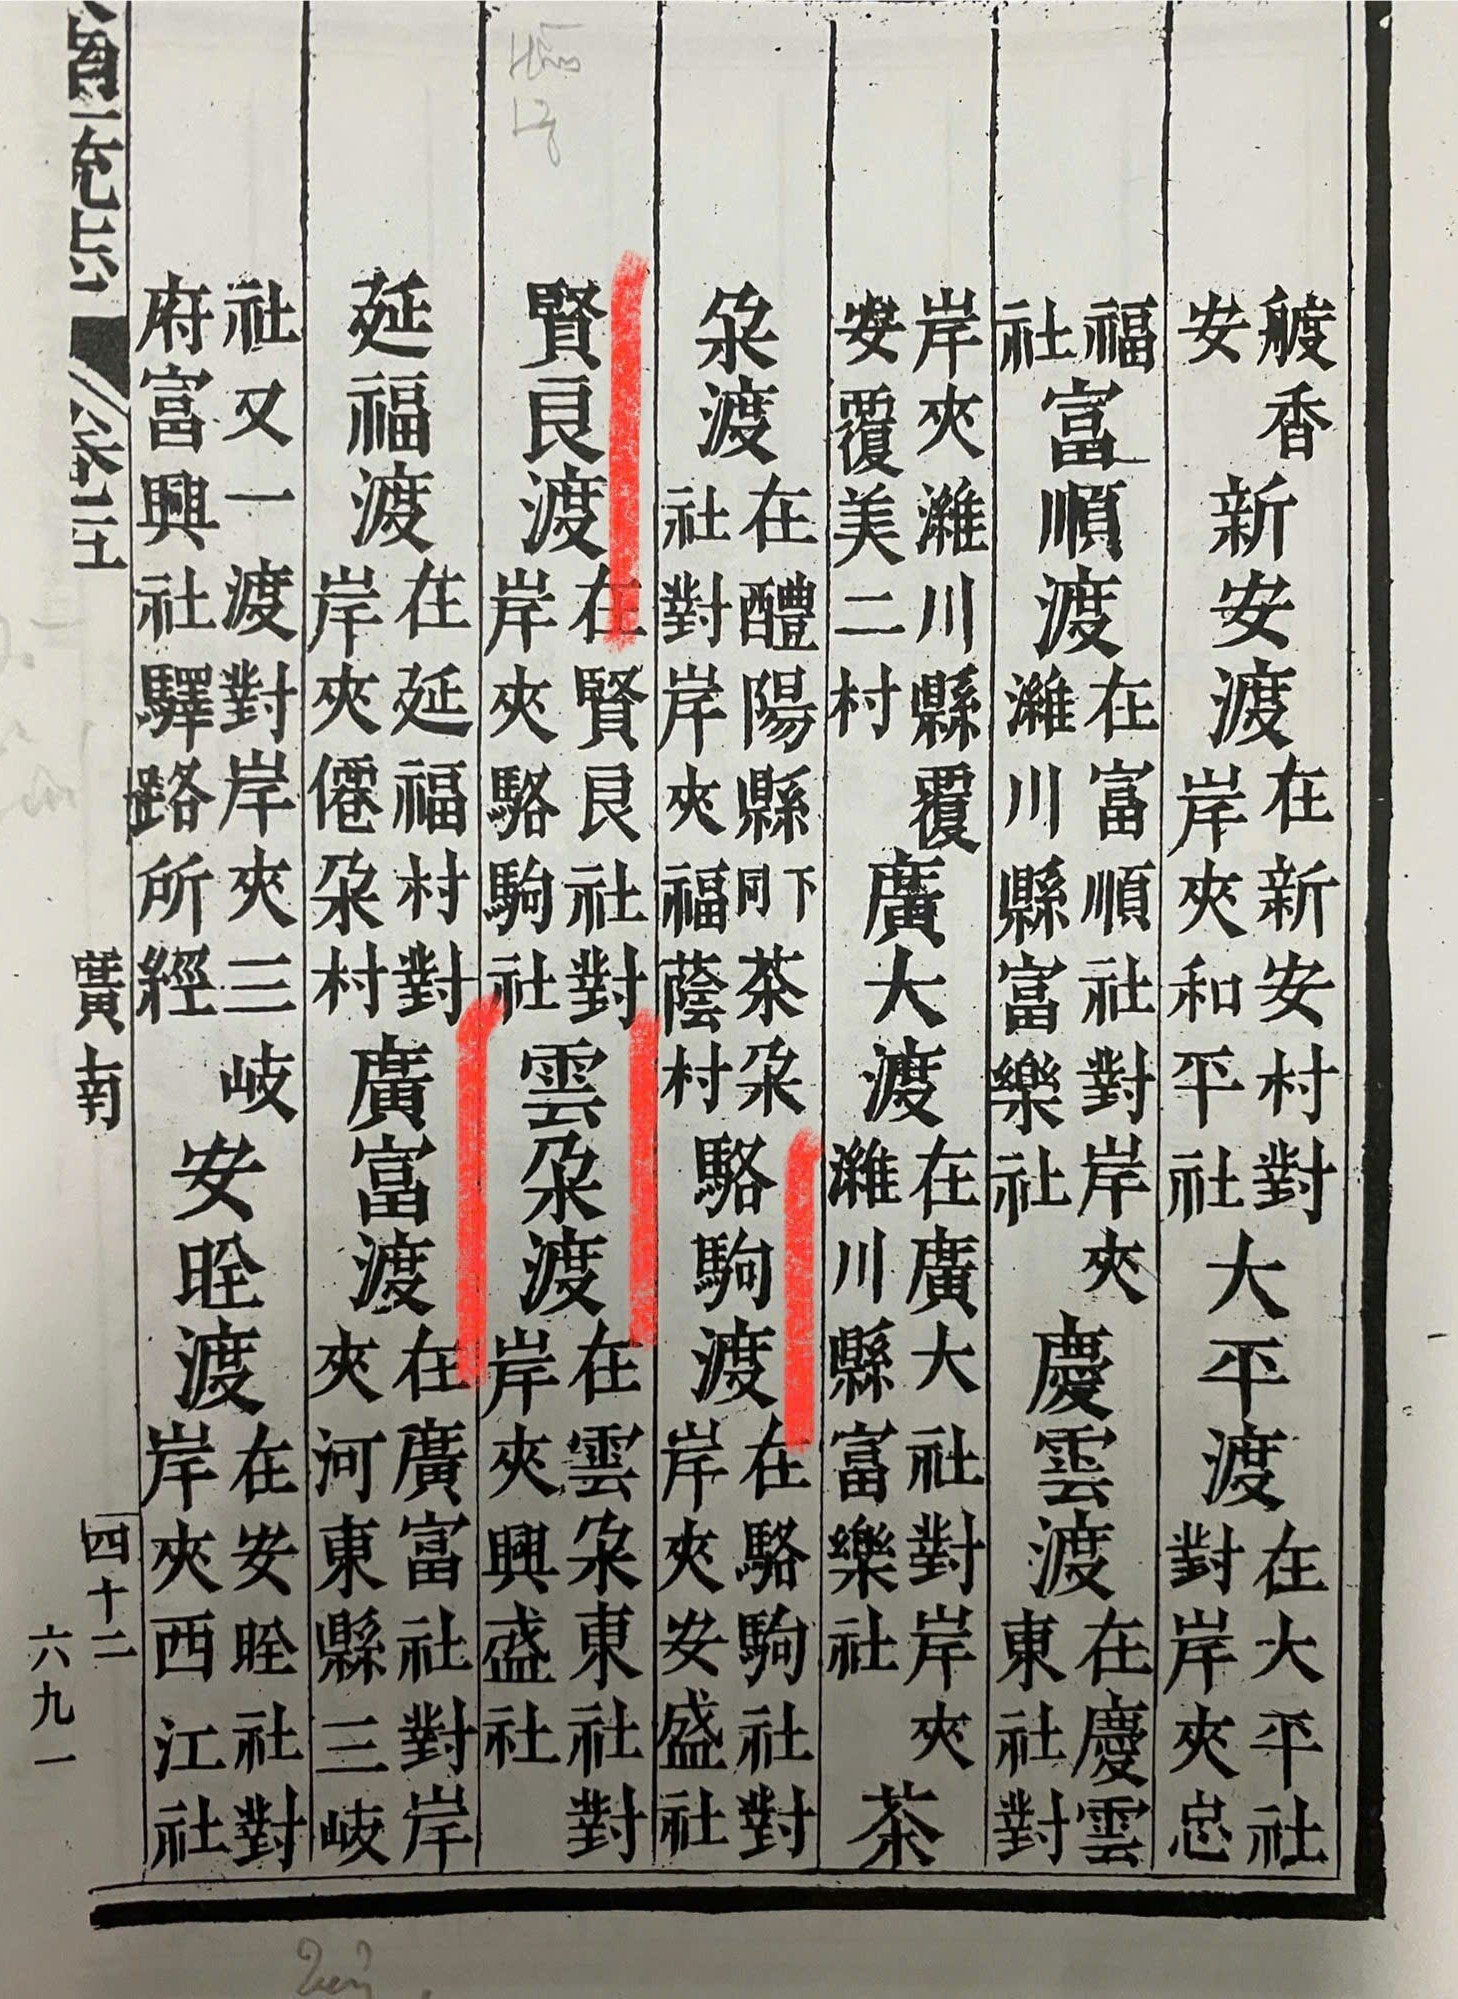 艔香
安
新安渡
在新安村對
岸夾和平社
大平渡
在大平社
對岸夾忠
福
社
富順渡
在富順社對岸夾
濰川縣富樂社
慶雲渡
在慶雲
東社對
岸夾濰川縣覆
安覆美二村
廣大渡
在廣大社對岸夾
濰川縣富樂社
茶
朶渡
在醴陽縣下同茶朶
社對岸夾福蔭村
駱駒渡
在駱駒社對
岸夾安盛社
賢良渡
在賢良社對
岸夾駱駒社
雲朶渡
在雲朶東社對
岸夾興盛社
延福渡
在延福村對
岸夾僊朶村
廣富渡
在廣富社對岸
夾河東縣三岐
社又一渡對岸夾三岐
府富興社驛路所經
安渡
在安社對
岸夾西江社
一統志
卷五
廣南
四十二
六九一